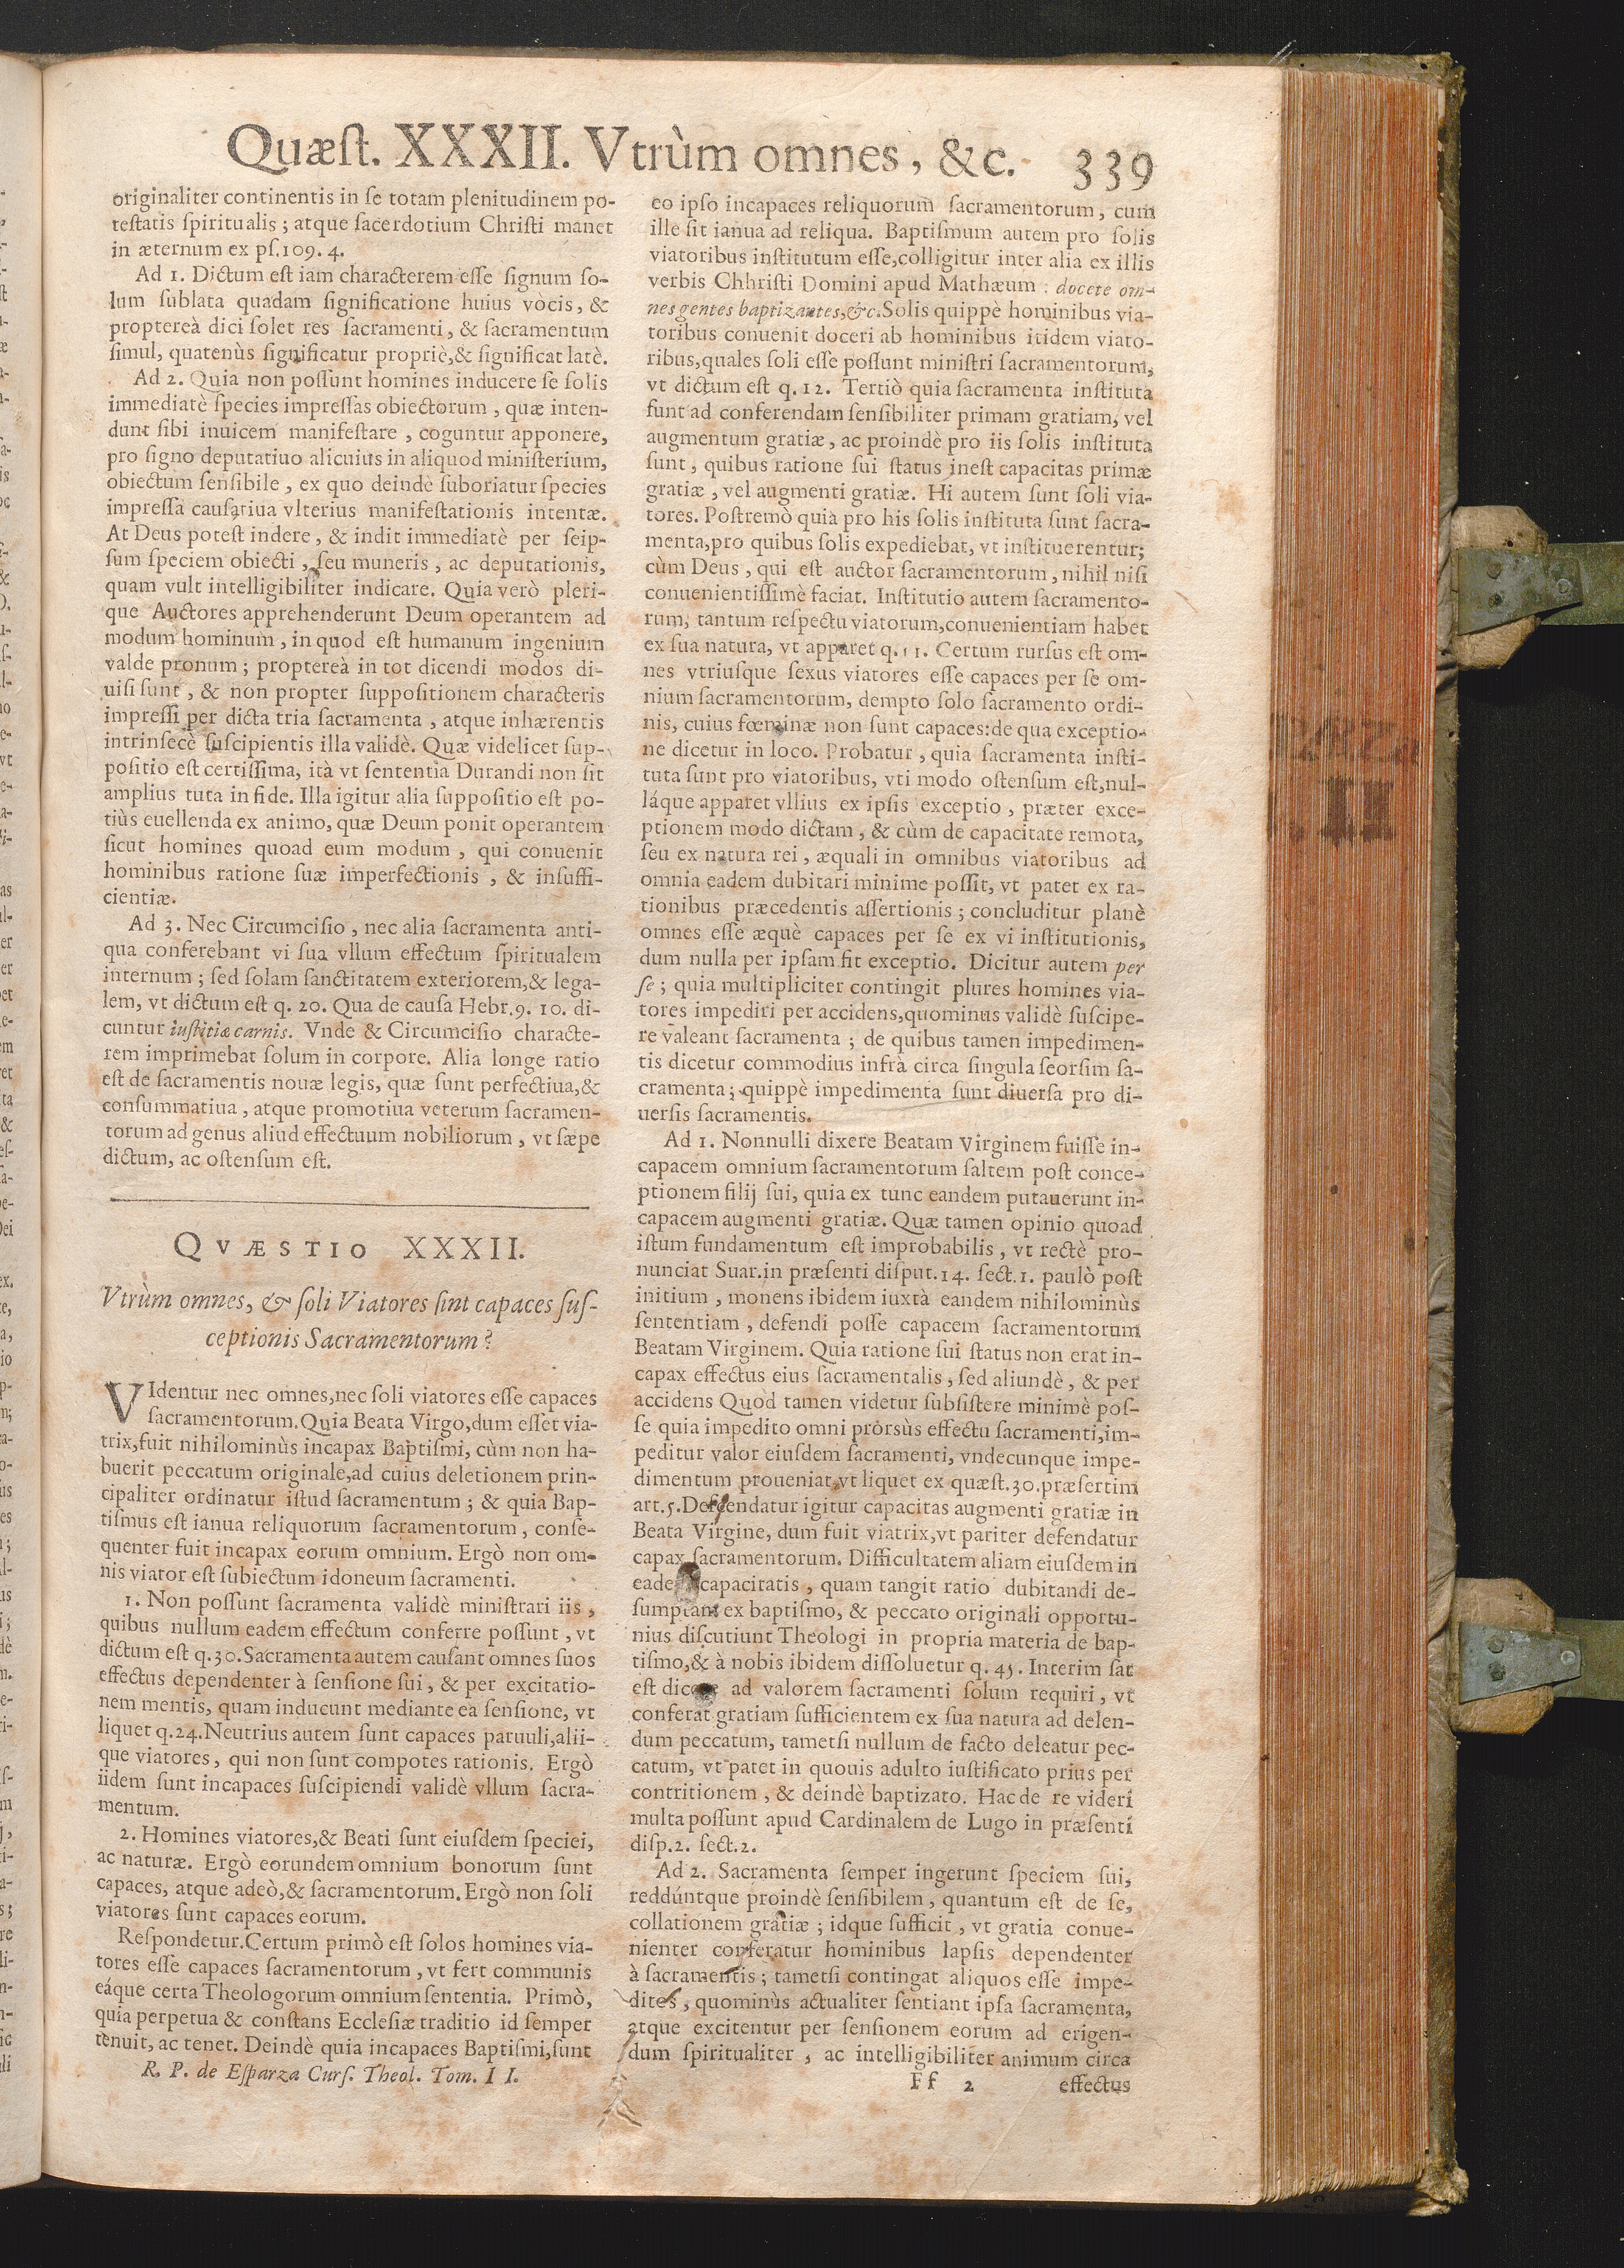 Quæst. XXXII. Vtrùm omnes, &c. 339
originaliter continentis in se totam plenitudinem po-
testatis spiritualis; atque sacerdotium Christi manet
in æternum ex ps.109. 4.
Ad 1. Dictum est iam characterem esse signum so-
lum sublata quadam significatione huius vòcis, &
proptereà dici solet res sacramenti, & sacramentum
simul, quatenùs significatur propriè,& significat latè.
Ad 2. Quia non possunt homines inducere se solis
immediatè species impressas obiectorum, quæ inten-
dunt sibi inuicem manifestare, coguntur apponere,
pro signo deputatiuo alicuius in aliquod ministerium,
obiectum sensibile, ex quo deindè suboriatur species
impressa causatiua vlterius manifestationis intentæ.
At Deus potest indere, & indit immediatè per seip-
sum speciem obiecti, seu muneris, ac deputationis,
quam vult intelligibiliter indicare. Quia verò pleri-
que Auctores apprehenderunt Deum operantem ad
modum hominum, in quod est humanum ingenium
valde pronum; proptereà in tot dicendi modos di-
uisi sunt, & non propter suppositionem characteris
impressi per dicta tria sacramenta, atque inhærentis
intrinsecè suscipientis illa validè. Quæ videlicet sup-
positio est certissima, ità vt sententia Durandi non sit
amplius tuta in fide. Illa igitur alia suppositio est po-
tiùs euellenda ex animo, quæ Deum ponit operantem
sicut homines quoad eum modum, qui conuenit
hominibus ratione suæ imperfectionis, & insuffi-
cientiæ.
Ad 3. Nec Circumcisio, nec alia sacramenta anti-
qua conferebant vi sua vllum effectum spiritualem
internum; sed solam sanctitatem exteriorem,& lega-
lem, vt dictum est q. 20. Qua de causa Hebr.9. 10. di-
cuntur iustitiæ carnis. Vnde & Circumcisio characte-
rem imprimebat solum in corpore. Alia longe ratio
est de sacramentis nouæ legis, quæ sunt perfectiua,&
consummatiua, atque promotiua veterum sacramen-
torum ad genus aliud effectuum nobiliorum, vt sæpe
dictum, ac ostensum est.
QVÆSTIO XXXII.
Vtrùm omnes, & soli Viatores sint capaces sus-
ceptionis Sacramentorum?
VIdentur nec omnes,nec soli viatores esse capaces
sacramentorum.Quia Beata Virgo,dum esset via-
trix,fuit nihilominùs incapax Baptismi, cùm non ha-
buerit peccatum originale,ad cuius deletionem prin-
cipaliter ordinatur istud sacramentum; & quia Bap-
tismus est ianua reliquorum sacramentorum, conse-
quenter fuit incapax eorum omnium. Ergò non om-
nis viator est subiectum idoneum sacramenti.
1. Non possunt sacramenta validè ministrari iis,
quibus nullum eadem effectum conferre possunt, vt
dictum est q.30.Sacramenta autem causant omnes suos
effectus dependenter à sensione sui, & per excitatio-
nem mentis, quam inducunt mediante ea sensione, vt
liquet q.24.Neutrius autem sunt capaces paruuli,alii-
que viatores, qui non sunt compotes rationis. Ergò
iidem sunt incapaces suscipiendi validè vllum sacra-
mentum.
2. Homines viatores,& Beati sunt eiusdem speciei,
ac naturæ. Ergò eorundem omnium bonorum sunt
capaces, atque adeò,& sacramentorum.Ergò non soli
viatores sunt capaces eorum.
Respondetur.Certum primò est solos homines via-
tores esse capaces sacramentorum, vt fert communis
eáque certa Theologorum omnium sententia. Primò,
quia perpetua & constans Ecclesiæ traditio id semper
tenuit, ac tenet. Deindè quia incapaces Baptismi,sunt
R. P. de Esparza Curs. Theol. Tom. II.
eo ipso incapaces reliquorum sacramentorum, cum
ille sit ianua ad reliqua. Baptismum autem pro solis
viatoribus institutum esse,colligitur inter alia ex illis
verbis Chhristi Domini apud Mathæum : docete om-
nes gentes baptizantes,&c.Solis quippè hominibus via-
toribus conuenit doceri ab hominibus itidem viato-
ribus,quales soli esse possunt ministri sacramentorum,
vt dictum est q.12. Tertiò quia sacramenta instituta
sunt ad conferendam sensibiliter primam gratiam, vel
augmentum gratiæ, ac proindè pro iis solis instituta
sunt, quibus ratione sui status inest capacitas primæ
gratiæ, vel augmenti gratiæ. Hi autem sunt soli via-
tores. Postremò quia pro his solis instituta sunt sacra-
menta,pro quibus solis expediebat, vt instituerentur;
cùm Deus, qui est auctor sacramentorum, nihil nisi
conuenientissimè faciat. Institutio autem sacramento-
rum, tantum respectu viatorum,conuenientiam habet
ex sua natura, vt apparet q.11. Certum rursus est om-
nes vtriusque sexus viatores esse capaces per se om-
nium sacramentorum, dempto solo sacramento ordi-
nis, cuius fœminæ non sunt capaces:de qua exceptio-
ne dicetur in loco. Probatur, quia sacramenta insti-
tuta sunt pro viatoribus, vti modo ostensum est,nul-
láque apparet vllius ex ipsis exceptio, præter exce-
ptionem modo dictam, & cùm de capacitate remota,
seu ex natura rei, æquali in omnibus viatoribus ad
omnia eadem dubitari minime possit, vt patet ex ra-
tionibus præcedentis assertionis; concluditur planè
omnes esse æquè capaces per se ex vi institutionis,
dum nulla per ipsam fit exceptio. Dicitur autem per
se; quia multipliciter contingit plures homines via-
tores impediri per accidens,quominus validè suscipe-
re valeant sacramenta; de quibus tamen impedimen-
tis dicetur commodius infrà circa singula seorsim sa-
cramenta; quippè impedimenta sunt diuersa pro di-
uersis sacramentis.
Ad 1. Nonnulli dixere Beatam Virginem fuisse in-
capacem omnium sacramentorum saltem post conce-
ptionem filij sui, quia ex tunc eandem putauerunt in-
capacem augmenti gratiæ. Quæ tamen opinio quoad
istum fundamentum est improbabilis, vt rectè pro-
nunciat Suar.in præsenti disput.14. sect.1. paulò post
initium, monens ibidem iuxtà eandem nihilominùs
sententiam, defendi posse capacem sacramentorum
Beatam Virginem. Quia ratione sui status non erat in-
capax effectus eius sacramentalis, sed aliundè, & per
accidens Quod tamen videtur subsistere minimè pos-
se quia impedito omni prorsùs effectu sacramenti,im-
peditur valor eiusdem sacramenti, vndecunque impe-
dimentum proueniat,vt liquet ex quæst.30.præsertim
art.5.Defendatur igitur capacitas augmenti gratiæ in
Beata Virgine, dum fuit viatrix,vt pariter defendatur
capax sacramentorum. Difficultatem aliam eiusdem in
eade capacitatis, quam tangit ratio dubitandi de-
sumptam ex baptismo, & peccato originali opportu-
nius discutiunt Theologi in propria materia de bap-
tismo,& à nobis ibidem dissoluetur q. 45. Interim sat
est dicere ad valorem sacramenti solum requiri, vt
conferat gratiam sufficientem ex sua natura ad delen-
dum peccatum, tametsi nullum de facto deleatur pec-
catum, vt patet in quouis adulto iustificato prius per
contritionem, & deindè baptizato. Hac de re videri
multa possunt apud Cardinalem de Lugo in præsenti
disp.2. sect.2.
Ad 2. Sacramenta semper ingerunt speciem sui,
reddúntque proindè sensibilem, quantum est de se,
collationem gratiæ; idque sufficit, vt gratia conue-
nienter conferatur hominibus lapsis dependenter
à sacramentis; tametsi contingat aliquos esse impe-
ditos, quominùs actualiter sentiant ipsa sacramenta,
atque excitentur per sensionem eorum ad erigen-
dum spiritualiter, ac intelligibiliter animum circa
Ff 2 effectus